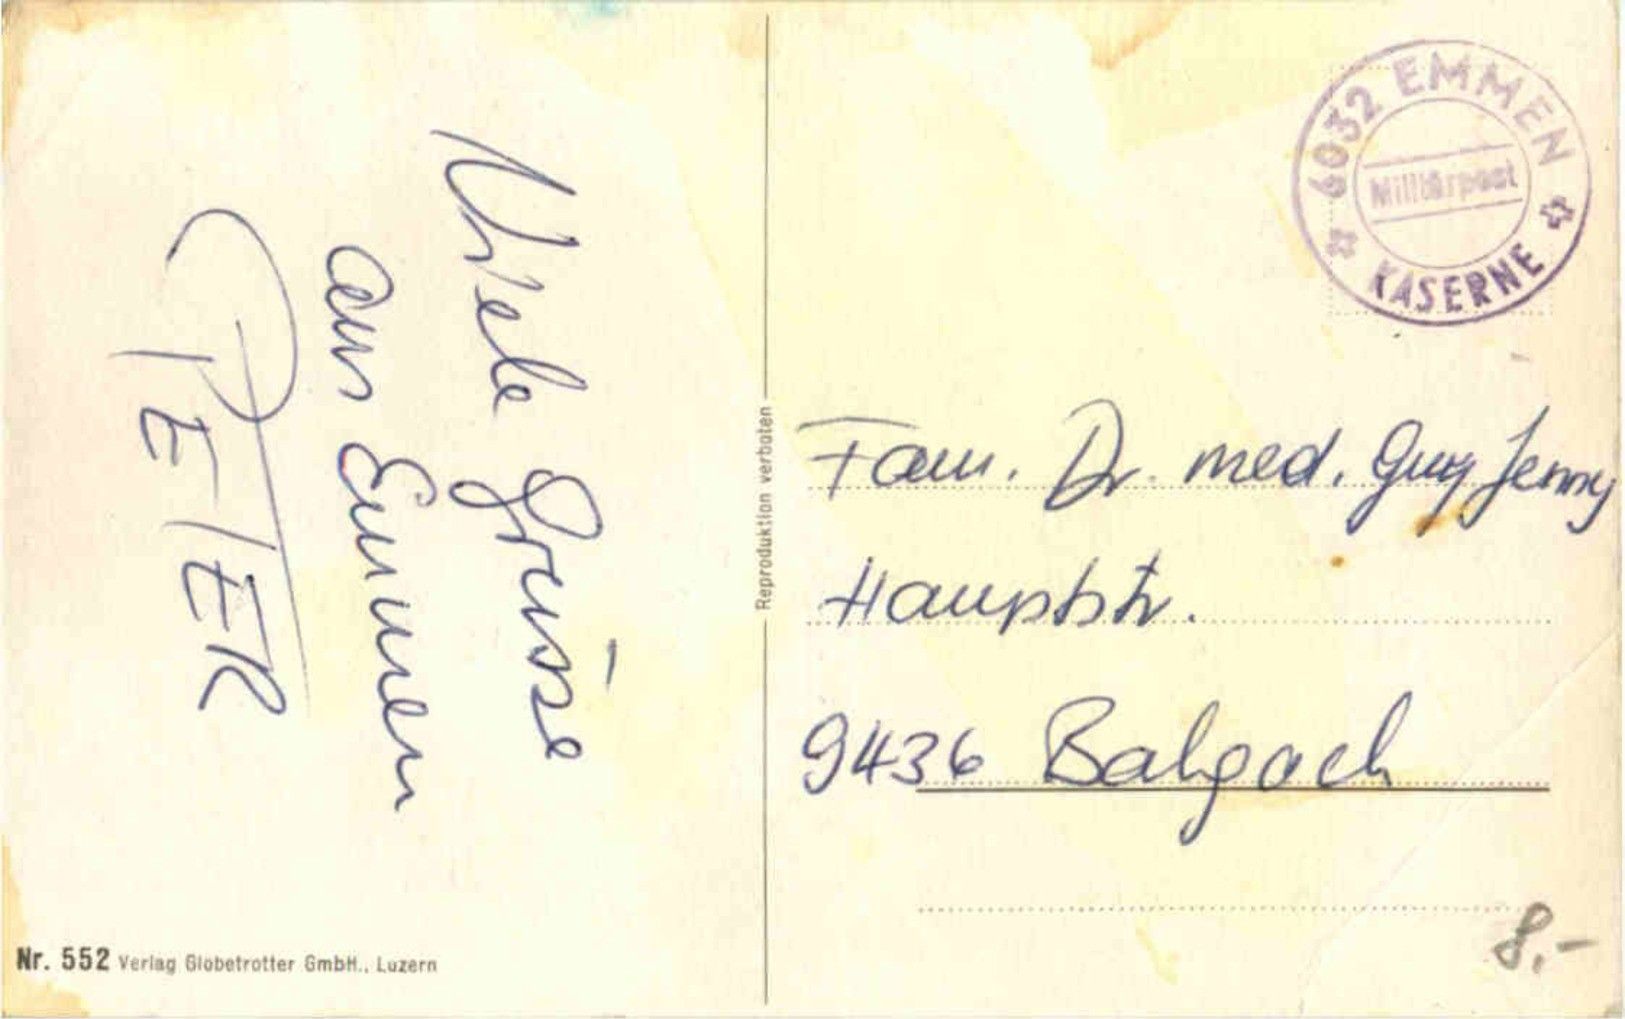 Viele Grüsse
aus Emmen
PETER
Reproduktion verboten
6032 EMMEN
Militärpost
KASERNE
Fam. Dr. med. Guy Jenny
Hauptstr.
9436 Balgach
8.-
Nr. 552 Verlag Globetrotter GmbH., Luzern